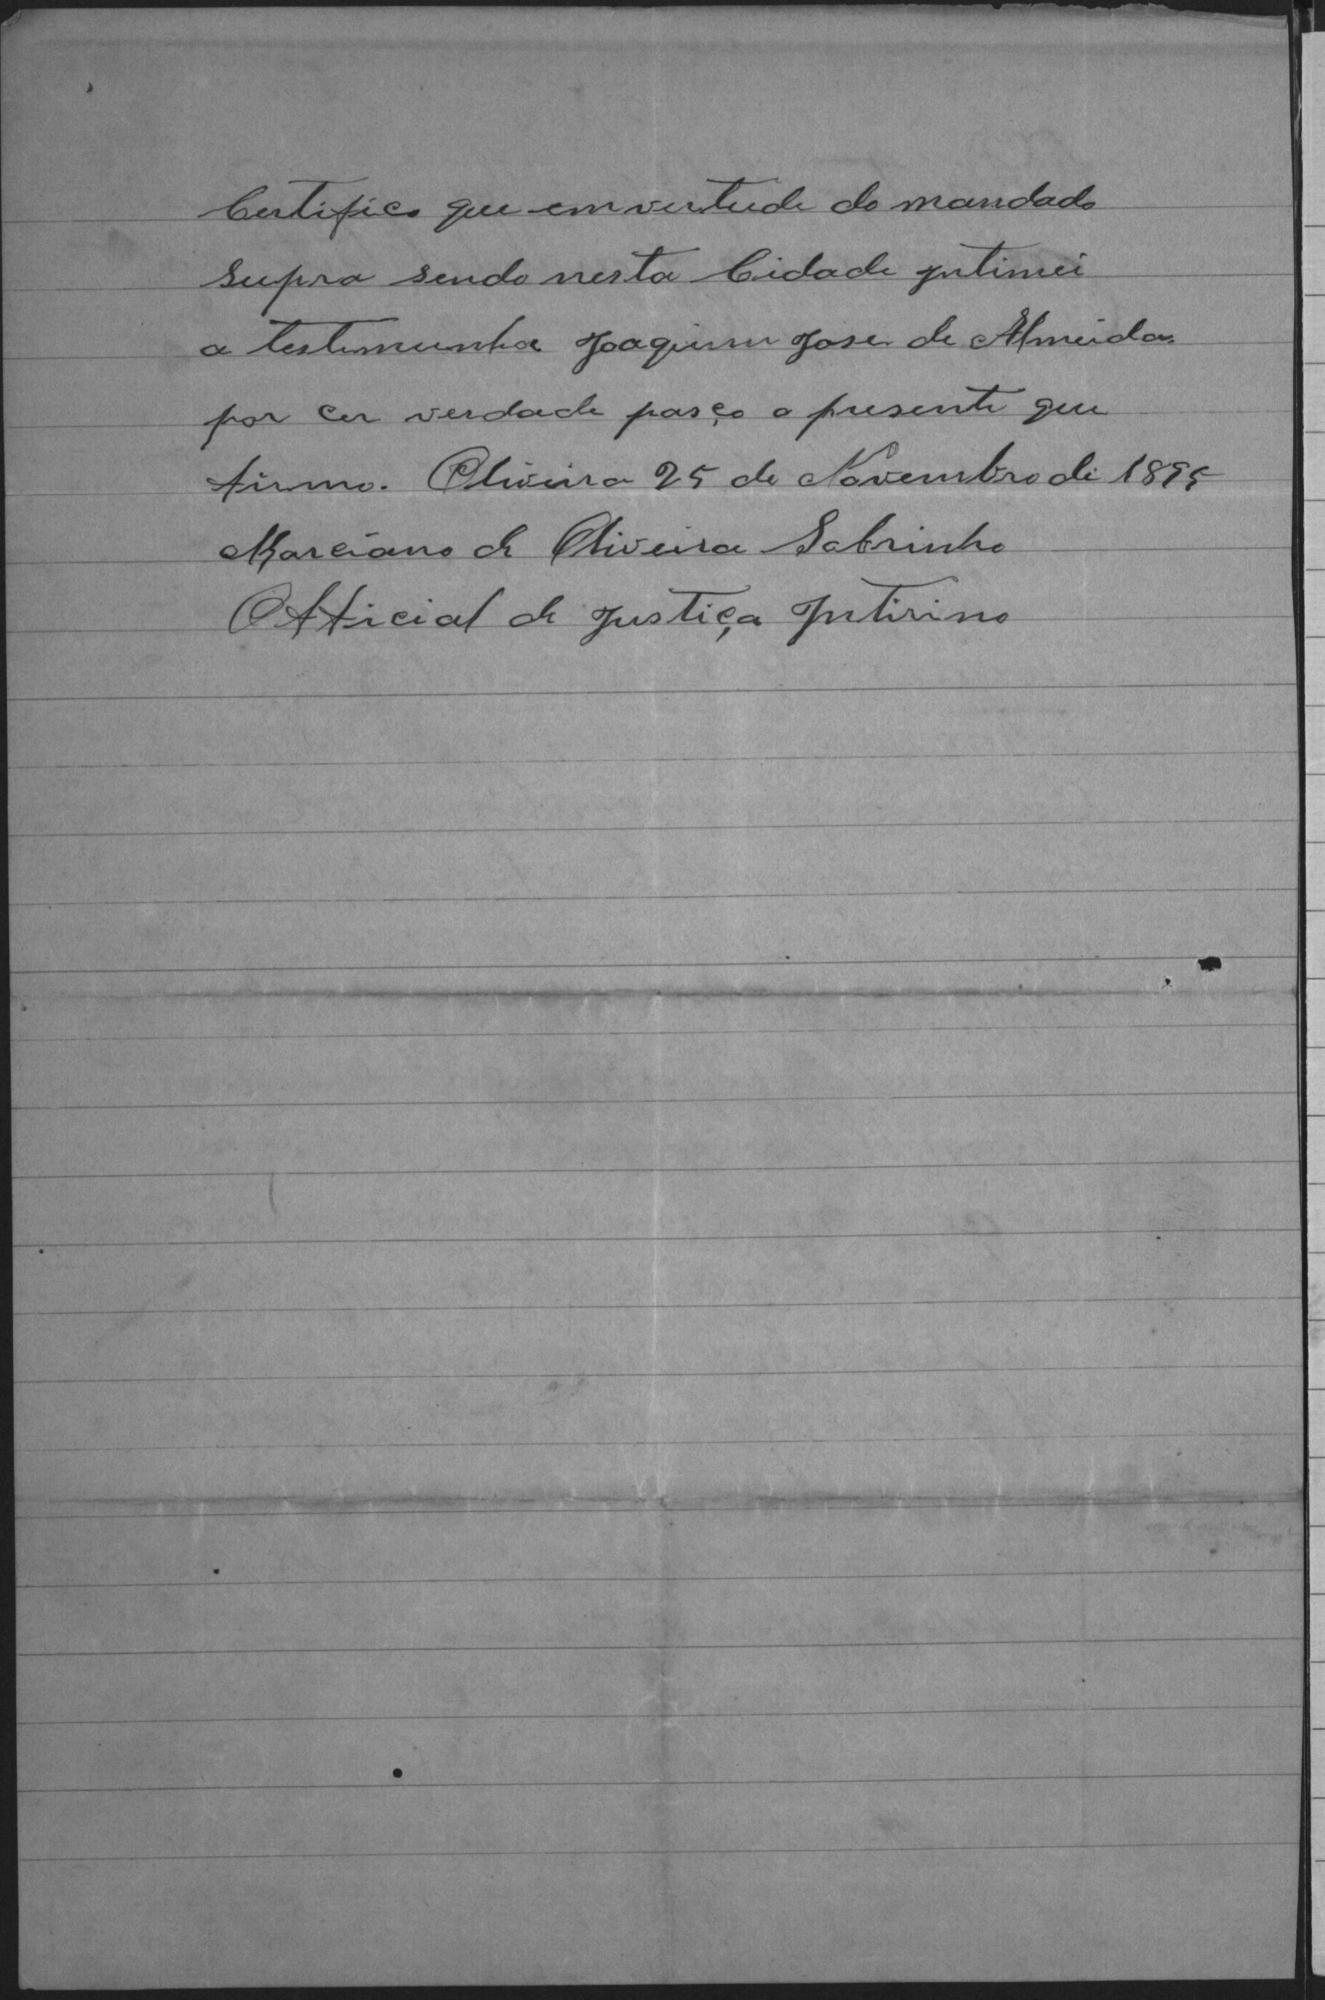 Certifico que em vertude do mandado
supra sendo nesta Cidade intimei
a testimunha Joaquim Jose de Almeida
por cer verdade pasço o presente que
firmo. Oliveira 25 de Novembro de 1895
Marciano de Oliveira Sobrinho
Official de Justiça Intirino